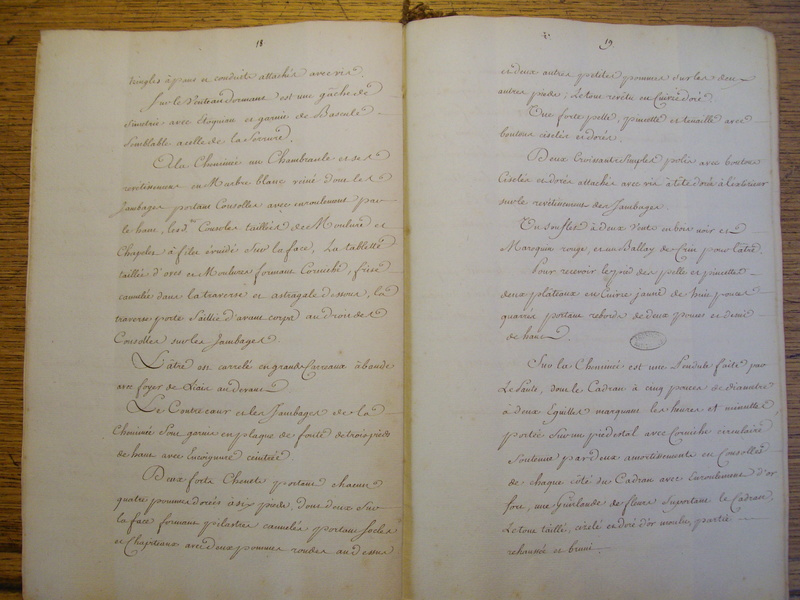 18
tringles à pans et conduits attachés avec vis.
Sur le Ventiau dormant est une gâche de
Simetrie avec Etoquiau et garnie de Bascule
Semblable a celle de la Serrure.
A la Cheminée un Chambranle et ses
revêtissemens en Marbre blanc veiné dont les
Jambages portant Consolles avec enroulement par
le haut, lesd. Consoles taillées de Moulures et
Chapelet à filet évuidé sur la face, La tablette
taillée d'oves et Moulures formant Corniche, frise
cannelée dans la traverse et astragale dessous, la
traverse porte Saillie d'avant corps au droit des
Consolles sur les Jambages.
L'âtre est carrelé en grands Carreaux à bande
avec foyer de Liais au devant
Le Contrecœur et les Jambages de la
Cheminée Sont garnis en plaque de fonte de trois pieds
de haut avec Encoignure ceintrée
Deux forts Chenets portant chacun
quatre pommes dorées à six pieds, dont deux Sur
la face formant pilastres cannelés portant Socles
et Chapiteaux avec deux pommes rondes au dessus
19
et deux autres petites pommes sur les deux
autres pieds; Le tout revêtu en Cuivre doré.
Une forte pelle, pincette et tenaille avec
boutons ciselés et dorés.
Deux Croissants Simples polis avec boutons
Ciselés et dorés attachés avec vis à tête dorée à l'extérieur
sur le revêtissement des Jambages.
Un soufflet à deux vents en bois noir et
Maroquin rouge, et un Ballay de Crin pour l'atre.
Pour recevoir le pied des pelle et pincettes
deux plâteaux en Cuivre jaune de huit pouces
quarrés portant rebords de deux pouces et demi
de haut.
Sur la Cheminée est une Pendule faite par
Le Paute, dont le Cadran à cinq pouces de diametre
à deux Eguilles marquant les heures et minuttes,
portée Sur un piedestal avec Corniche circulaire
Soutenue par deux amortissements en Consolles
de chaque côté du Cadran avec Enroulement d'or
fore, une Guirlande de fleurs Suportant le Cadran.
Le tout taillé, cizelé et doré d'or moulu, partie
rehaussée et bruni.